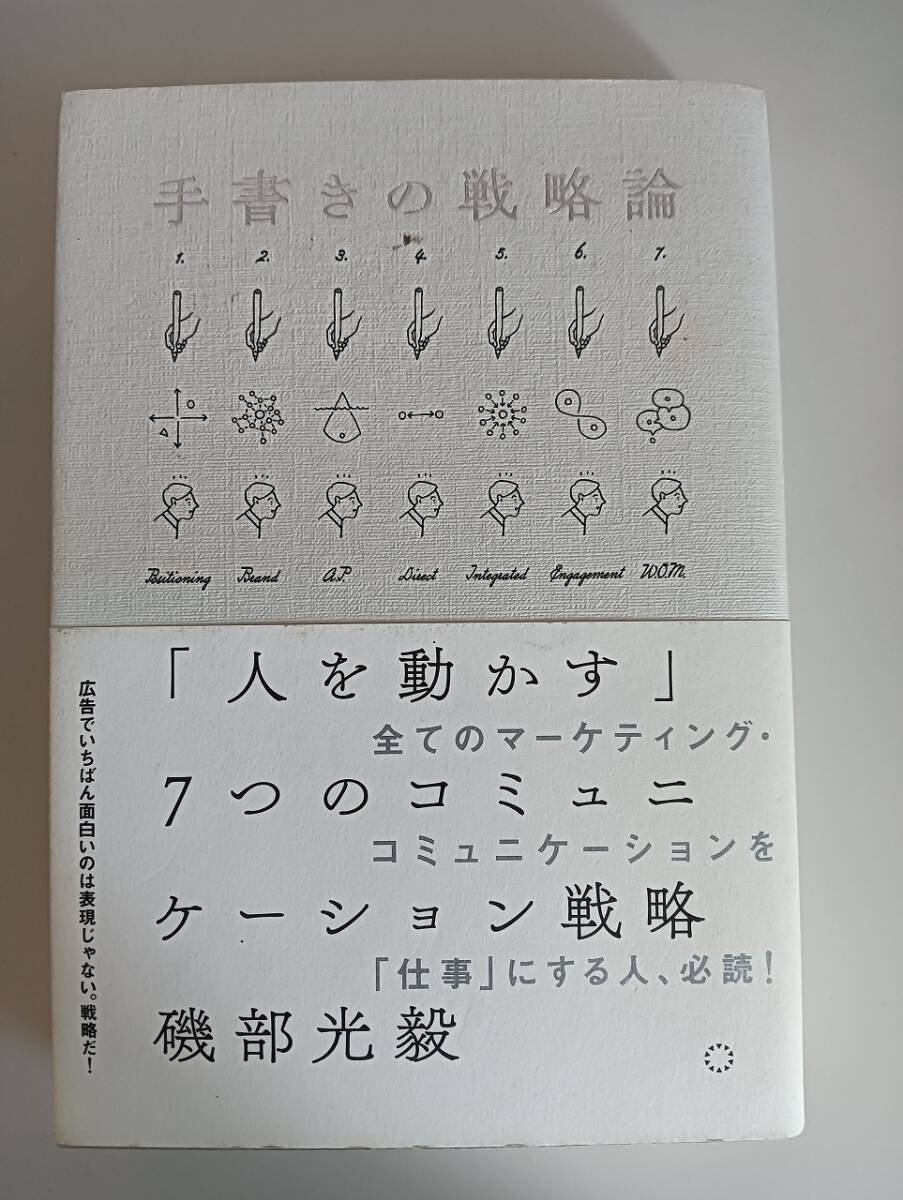 手書きの戦略論
1. 2. 3. 4. 5. 6. 7.
Positioning Brand A.P. Direct Integrated Engagement W.O.M.
「人を動かす」
7つのコミュニ
ケーション戦略
磯部光毅
全てのマーケティング・
コミュニケーションを
「仕事」にする人、必読!
広告でいちばん面白いのは表現じゃない。戦略だ!